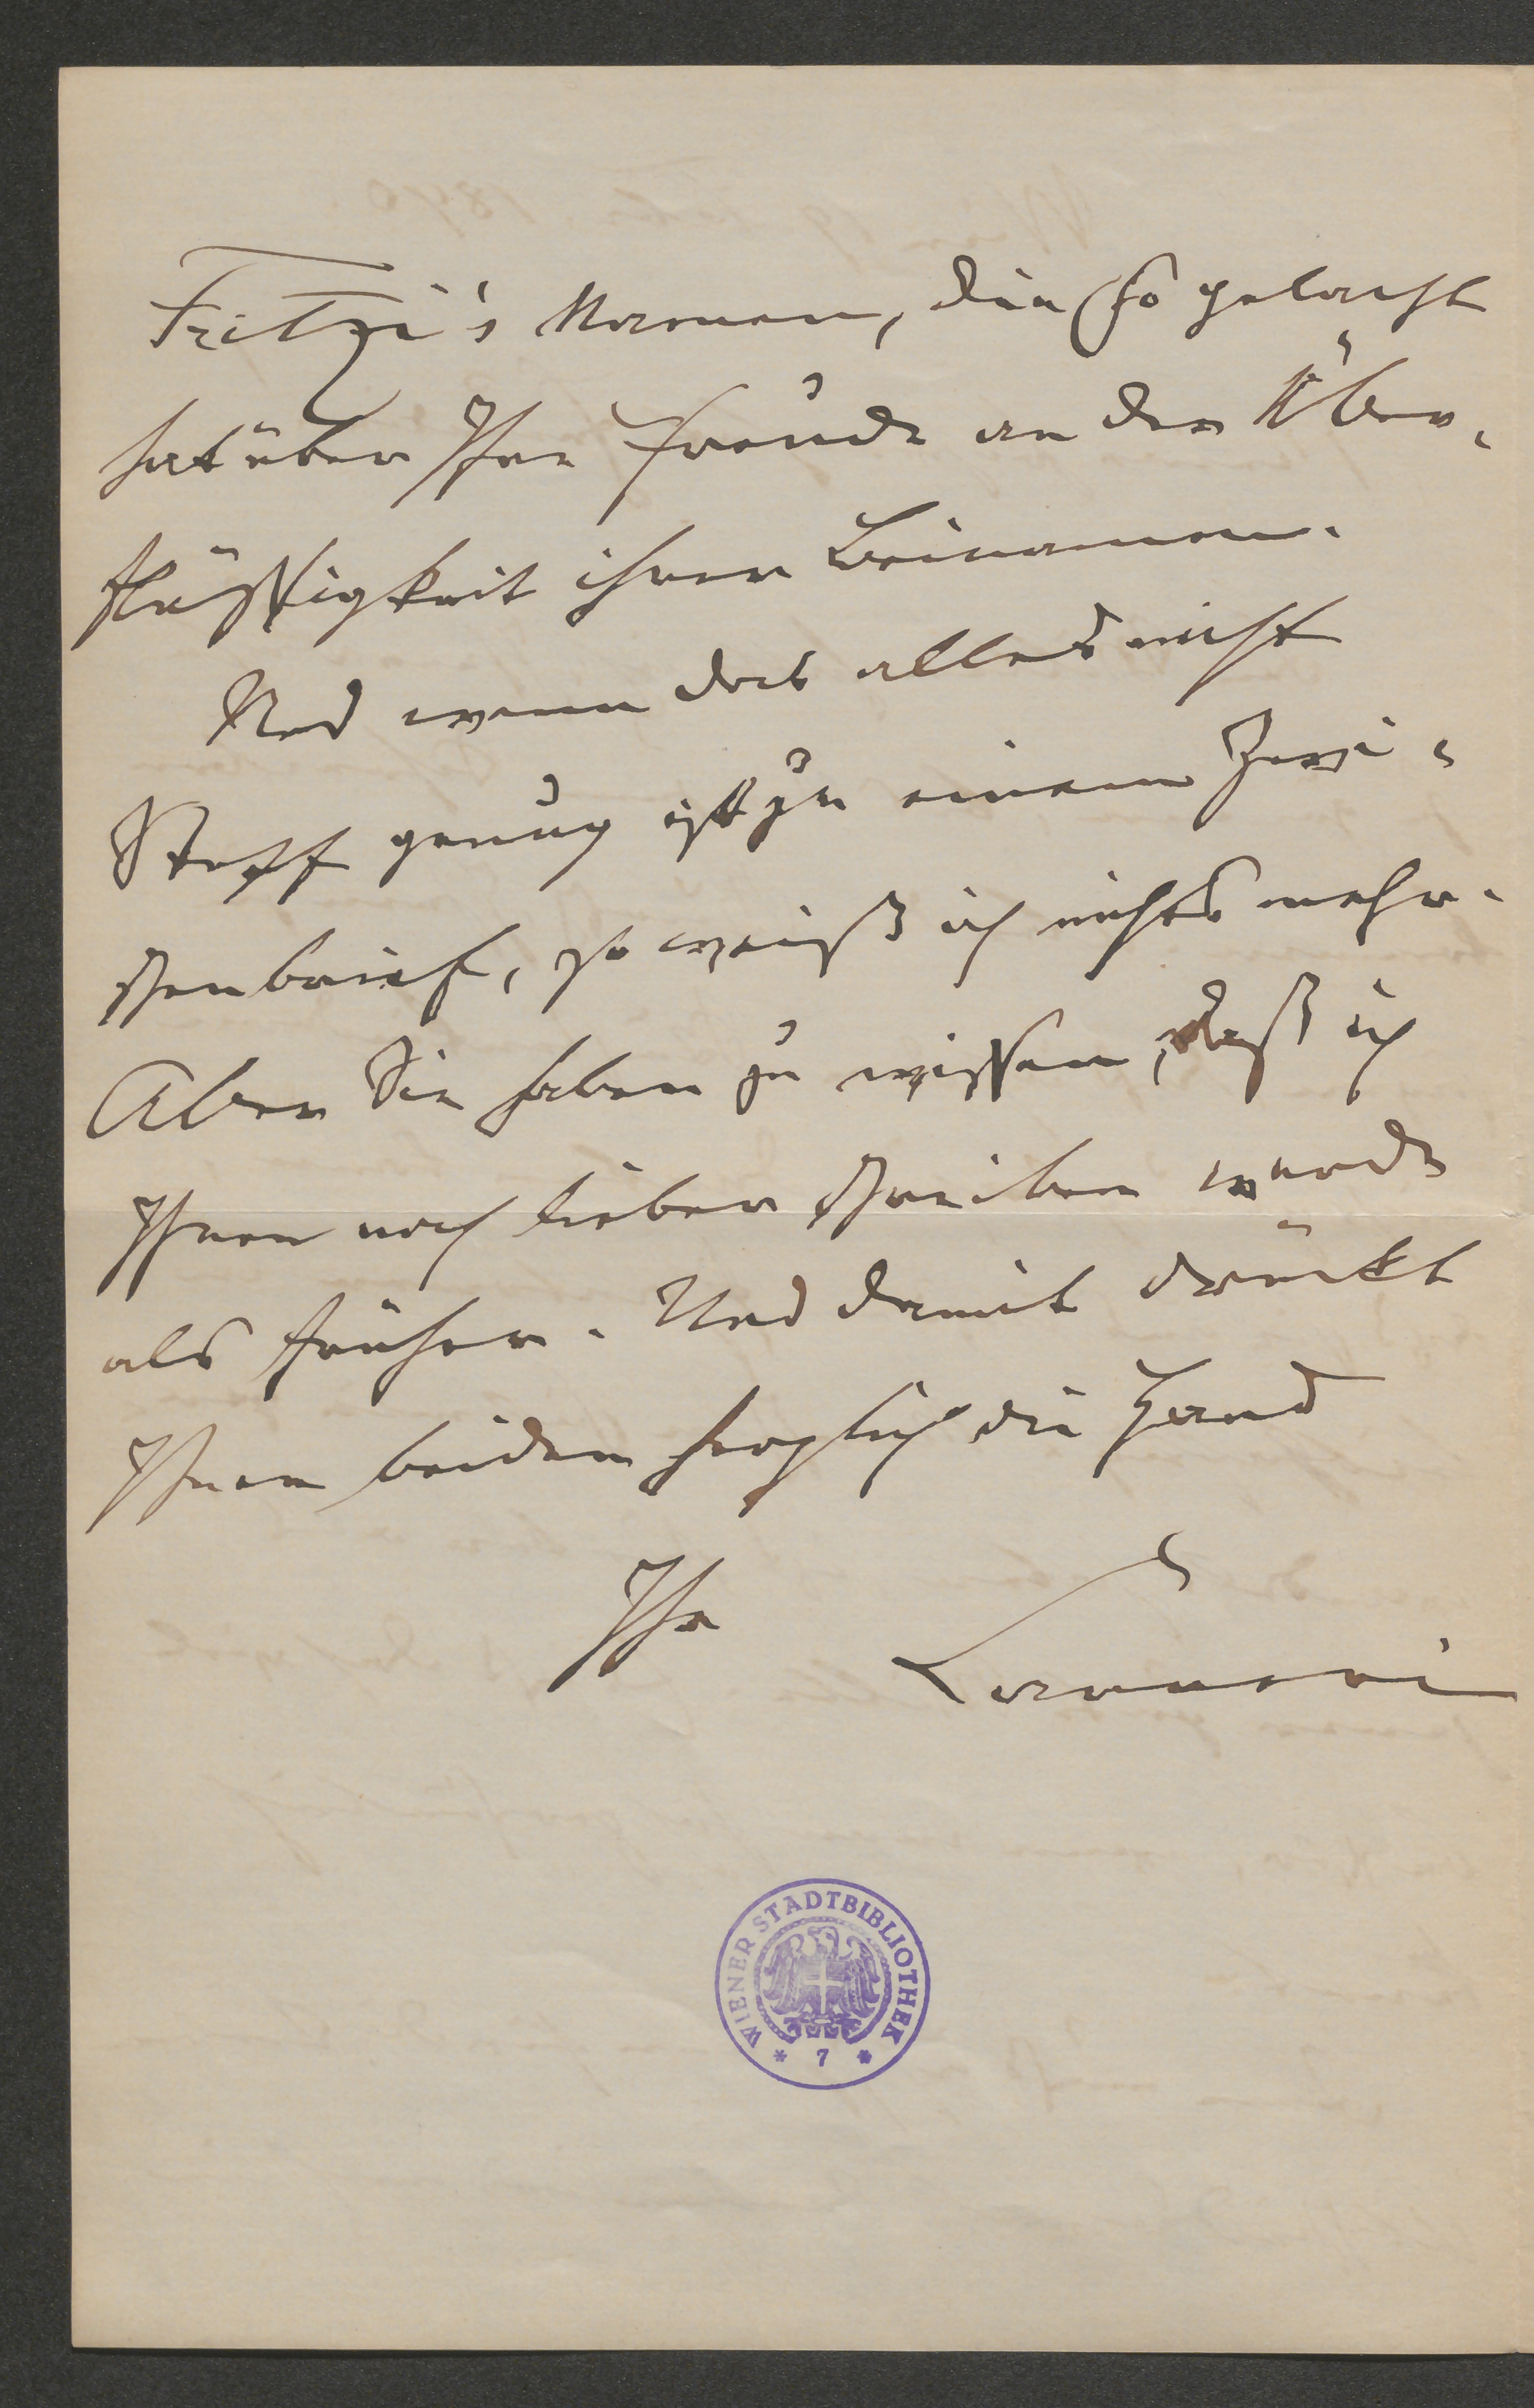 Fritzi's Namen, die so gelacht
hat über Ihre Freude an der Über-
flüssigkeit ihrer Beinamen.
Und wenn das alles nicht
Stoff genug ist zu einem Zwi-
schenbrief, so weiß ich nichts mehr.
Aber Sie haben zu wissen, daß ich
Ihnen noch lieber schreiben werde
als früher. Und damit drückt
Ihnen beiden herzlich die Hand
Ihr
WIENER STADTBIBLIOTHEK
* 7 *